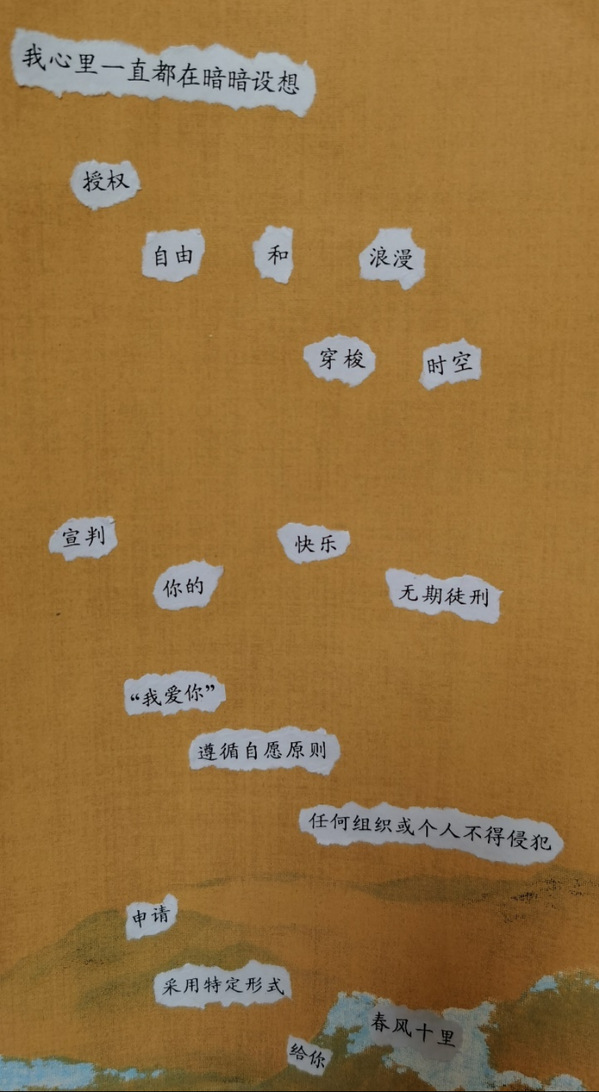 我心里一直都在暗暗设想
授权
自由 和 浪漫
穿梭 时空
宣判 快乐
你的 无期徒刑
“我爱你”
遵循自愿原则
任何组织或个人不得侵犯
申请
采用特定形式
春风十里
给你